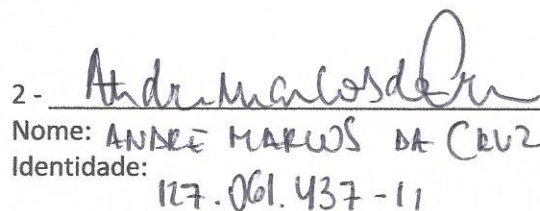 2 - Andre Marcos da Cruz
Nome: ANDRE MARCOS DA CRUZ
Identidade:
127.061.437-11